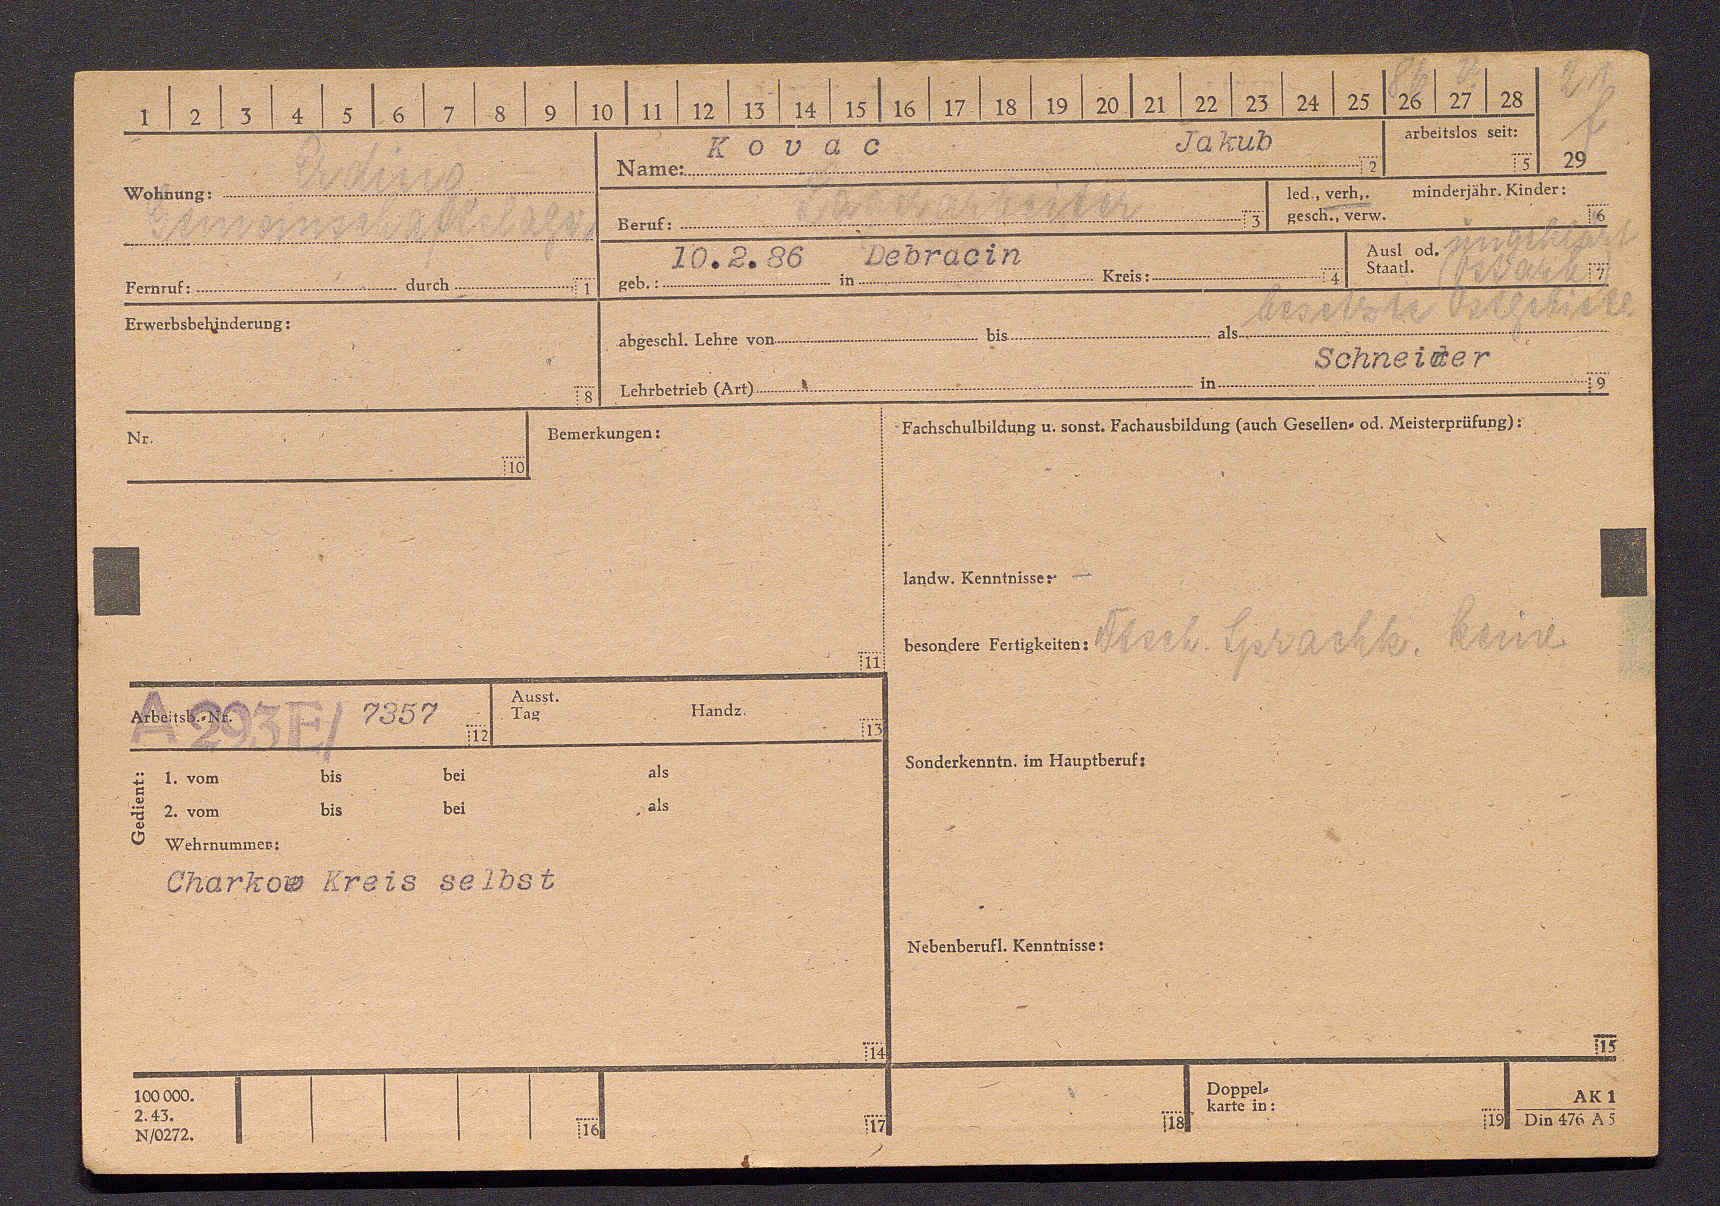 1 2 3 4 5 6 7 8 9 10 11 12 13 14 15 16 17 18 19 20 21 22 23 24 25 26 27 28
29
Wohnung: Erding
Gemeinschaftslager
Fernruf: durch 1
Name: Kovac Jakub 2
arbeitslos seit: 5
Beruf: 3
led., verh., minderjähr. Kinder:
gesch., verw. 6
geb.: 10.2.86 in Debracin Kreis: 4
Ausl od. ungeklärt
Staatl. (Ostarb.) 7
besetzte Ostgebiete
Erwerbsbehinderung:
8
abgeschl. Lehre von bis als
Schneider
Lehrbetrieb (Art) in 9
Nr.
10
Bemerkungen:
11
Fachschulbildung u. sonst. Fachausbildung (auch Gesellen- od. Meisterprüfung):
landw. Kenntnisse: —
besondere Fertigkeiten: Dtsch. Sprachk. keine
Sonderkenntn. im Hauptberuf:
Nebenberufl. Kenntnisse:
15
Arbeitsb.-Nr. A 293E/ 7357 12
Ausst.
Tag Handz. 13
Gedient:
1. vom bis bei als
2. vom bis bei als
Wehrnummer:
Charkow Kreis selbst
14
100 000.
2. 43.
N/0272.
16
17
18
Doppel-
karte in: 19
AK 1
Din 476 A 5